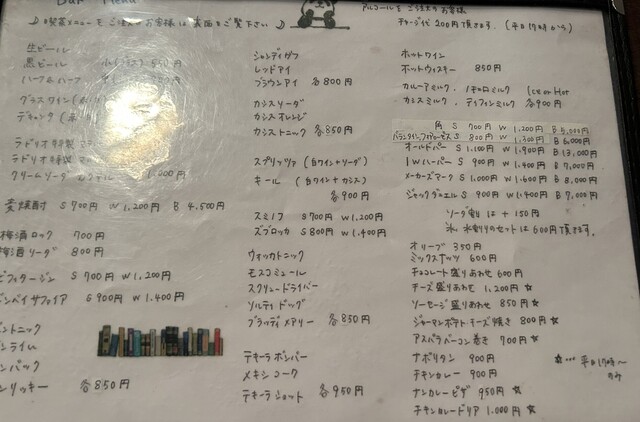 Bar Menu
♪喫茶メニューをご注文のお客様は裏面をご覧下さい♪
アルコールをご注文のお客様
チャージ代 200円頂きます。(平日17時から)
生ビール
黒ビール
550円
ハーフ&ハーフ
グラスワイン(
ラドリオ特製
ラドリオ特製
クリームソーダ
麦焼酎 S 700円 W 1,200円 B 4,500円
梅酒ロック 700円
梅酒ソーダ 800円
ビフィタージン S 700円 W 1,200円
ボンベイサファイア S 900円 W 1,400円
ジントニック
ジンライム
ジンバック
ジンリッキー 各850円
シャンディガフ
レッドアイ
ブラウンアイ 各800円
カシスソーダ
カシスオレンジ
カシストニック 各850円
スプリッツァ (白ワイン+ソーダ)
キール (白ワイン+カシス)
各900円
スミノフ S 700円 W 1,200円
ズブロッカ S 800円 W 1,400円
ウォッカトニック
モスコミュール
スクリュードライバー
ソルティドッグ
ブラッディメアリー 各850円
テキーラボンバー
メキシコーク
テキーラショット 各950円
ホットワイン
ホットウィスキー 850円
カルーアミルク・パチョロミルク Ice or Hot
カシスミルク・ティフィンミルク 各900円
角 S 700円 W 1,200円 B 5,000円
バランタイン,フォアローゼス S 800円 W 1,300円 B 6,000円
オールドパー S 1,100円 W 1,900円 B 13,000円
I.W.ハーパー S 900円 W 1,400円 B 7,000円
メーカーズマーク S 1,000円 W 1,600円 B 8,000円
ジャックダニエル S 900円 W 1,400円 B 7,000円
ソーダ割は + 150円
氷、水割りのセットは600円頂きます。
オリーブ 350円
ミックスナッツ 600円
チョコレート盛りあわせ 600円
チーズ盛りあわせ 1,200円☆
ソーセージ盛りあわせ 850円☆
ジャーマンポテトチーズ焼き 800円☆
アスパラベーコン巻き 700円☆
ナポリタン 900円
チキンカレー 900円
ナンカレーピザ 950円☆
チキンカレードリア 1,000円☆
☆…平日17時〜のみ